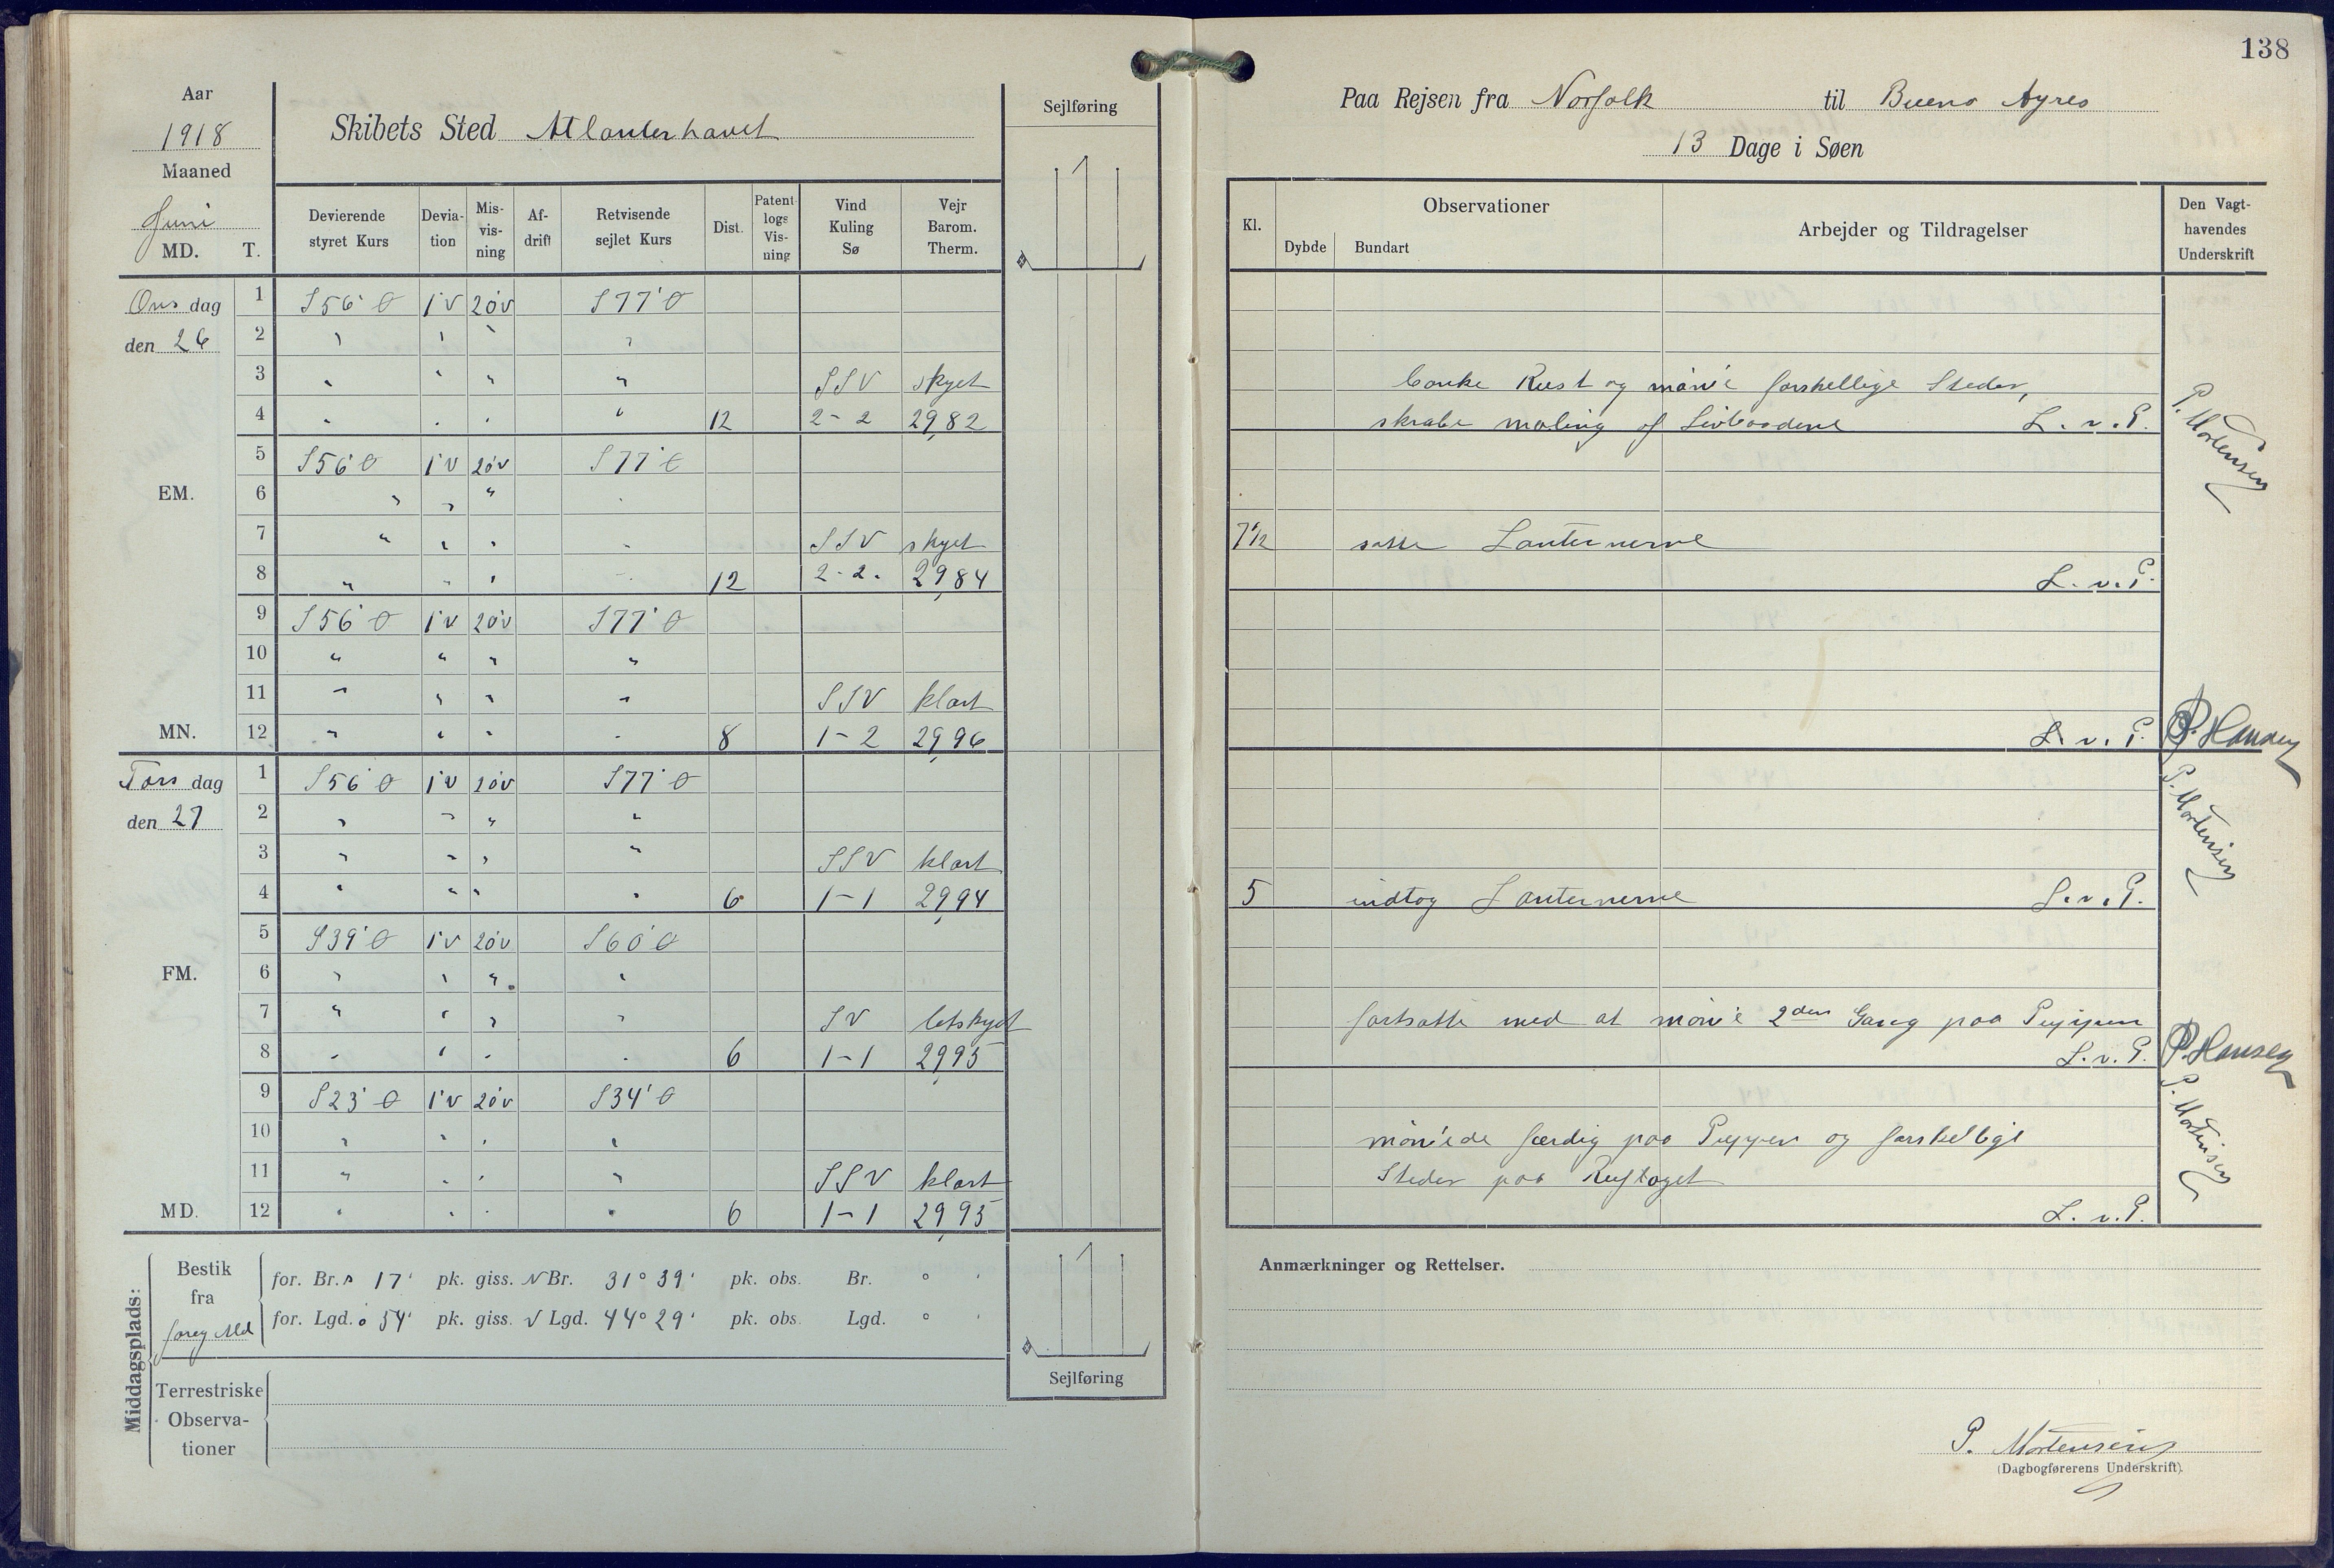 138
Aar
1918
Maaned
Juni
MD. T.
Skibets Sted Atlanterhavet
Sejlføring
Devierende styret Kurs | Deviation | Misvisning | Afdrift | Retvisende sejlet Kurs | Dist. | Patent logs Visning | Vind Kuling Sø | Vejr Barom. Therm.
Onsdag 1 S56°Ø 1°V 20°V S77°Ø
den 26 2 " " " "
3 " " " " SSV skyet
4 " " " " 12 2-2 29,82
5 S56°Ø 1°V 20°V S77°Ø
EM. 6 " " " "
7 " " " " SSV skyet
8 " " " " 12 2-2. 29,84
9 S56°Ø 1°V 20°V S77°Ø
10 " " " "
11 " " " " SSV klart
MN. 12 " " " " 8 1-2 29,96
Torsdag 1 S56°Ø 1°V 20°V S77°Ø
den 27 2 " " " "
3 " " " " SSV klart
4 " " " " 6 1-1 29,94
5 S39°Ø 1°V 20°V S60°Ø
FM. 6 " " " "
7 " " " " SV letskyet
8 " " " " 6 1-1 29,95
9 S23°Ø 1°V 20°V S34°Ø
10 " " " "
11 " " " " SSV klart
MD. 12 " " " " 6 1-1 29,95
Middagsplads:
Bestik fra
for. Br. s 17' pk. giss. N Br. 31° 39' pk. obs. Br. ° '
for. Lgd. ö 54' pk. giss. V Lgd. 44° 29' pk. obs. Lgd. ° '
Terrestriske Observationer
Sejlføring
Paa Rejsen fra Norfolk til Bueno Ayres
13 Dage i Søen
Kl. | Observationer | Arbejder og Tildragelser | Den Vagthavendes Underskrift
Dybde | Bundart
banke Rust og mønie forskellige Steder,
skrabe maling af Livbaadene L. v. P.
P. Mortensen
7½ satte Lanternerne
L. v. P.
L. v. P. P. Hansen
P. Mortensen
5 indtog Lanternerne L. v. P.
fortsatte med at mønie 2den Gang paa Puppen
L. v. P. P. Hansen
P. Mortensen
møniede færdig paa Puppen og forskellige
Steder paa Ruftaget
L. v. P.
Anmærkninger og Rettelser.
P. Mortensen
(Dagbogførerens Underskrift).